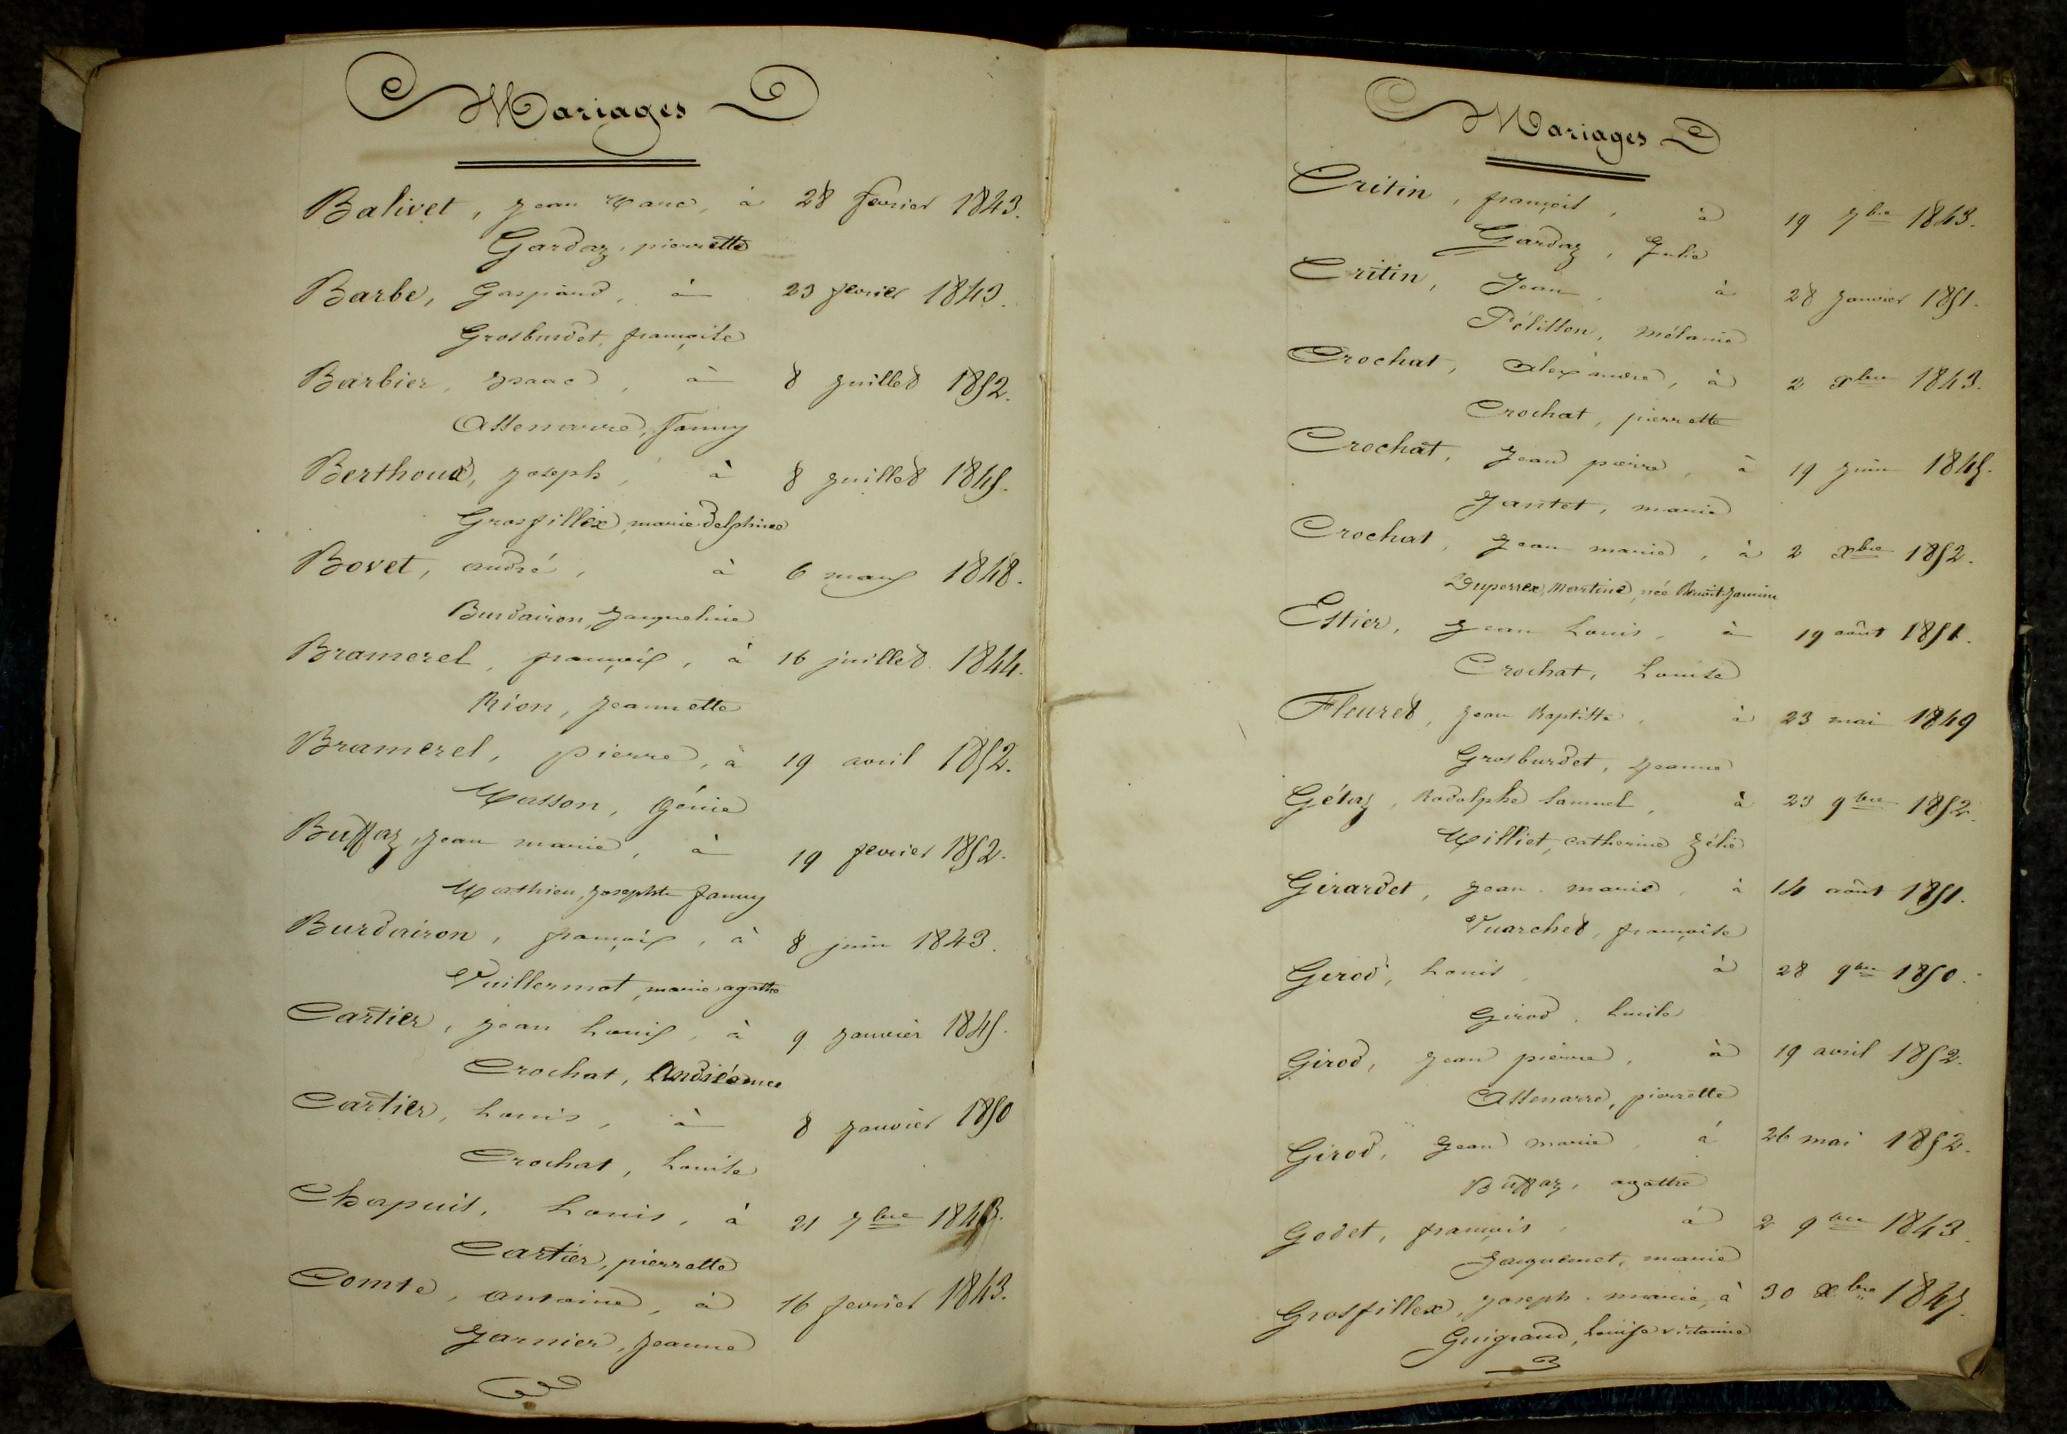 Mariages
Balivet, Jean Marc, à 28 fevrier 1843.
Gardaz, pierrette
Barbe, Gaspard, à 23 fevrier 1843.
Grosburdet, françoise
Barbier, Isaac, à 8 juillet 1852.
Assenarre, fanny
Berthoud, joseph, à 8 juillet 1845.
Grosfillex, marie delphine
Bovet, andré, à 6 mars 1848.
Burdairon, Jacqueline
Bramerel, françois, à 16 juillet 1844.
Rion, jeannette
Bramerel, pierre, à 19 avril 1852.
Masson, Génie
Buffaz, jean marie, à 19 fevrier 1852.
Mathieu, josephte fanny
Burdairon, françois, à 8 juin 1843.
Vuillermot, marie agathe
Cartier, jean Louis, à 9 janvier 1845.
Crochat, Andréanne
Cartier, Louis, à 8 janvier 1850
Crochat, Louise
Chapuis, Louis, à 21 7bre
Cartier, pierrette
Comte, antoine, à 16 fevrier 1843.
Garnier, jeanne
Mariages
Critin, françois, à 19 7bre 1843.
Gardaz, Julie
Critin, Jean, à 28 janvier 1851.
Pélisson, mélanie
Crochat, alexandre, à 2 xbre 1843.
Crochat, pierrette
Crochat, Jean pierre, à 19 juin 1845.
Jantet, marie
Crochat, Jean marie, à 2 xbre 1852.
Duperrex, Martine, née Benoit-Jannin
Estier, Jean Louis, à 19 août 1851.
Crochat, Louise
Fleuret, Jean Baptiste, à 23 mai 1849
Grosburdet, Jeanne
Gétaz, Rodolphe Samuel, à 23 9bre 1852.
Milliet, catherine Zélie
Girardet, Jean marie, à 14 août 1851.
Vuarchet, françoise
Girod, Louis, à 28 9bre 1850.
Girod, Louise
Girod, Jean pierre, à 19 avril 1852.
Assenarre, pierrette
Girod, Jean marie, à 26 mai 1852.
Buffaz, agathe
Godet, françois, à 2 9bre 1843.
Jacquemet, marie
Grosfillex, joseph marie, à 30 xbre 1845.
Guigrand, Louise victorine